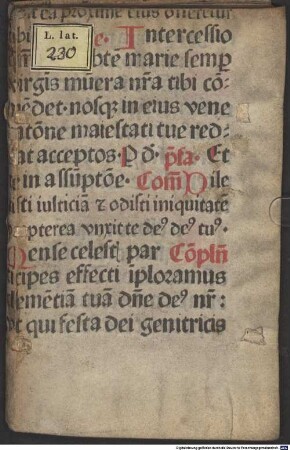 proxime eius
L. lat.
230
Intercessio
bte marie semp
virgis muera nr̃a tibi cō=
det· nosq; in eius vene
ratōne maiestati tue red=
at acceptos P d̄· p̄fa· Et
te in assūptōe· Com̄ Dile
isti iusticiā ⁊ odisti iniquitatē
propterea vnxit te deꝰ deꝰ tuꝰ·
Mense celest par Cōplñ
ticipes effecti īploramus
clementiā tuā dn̄e deꝰ nr̄:
vt qui festa dei genitricis